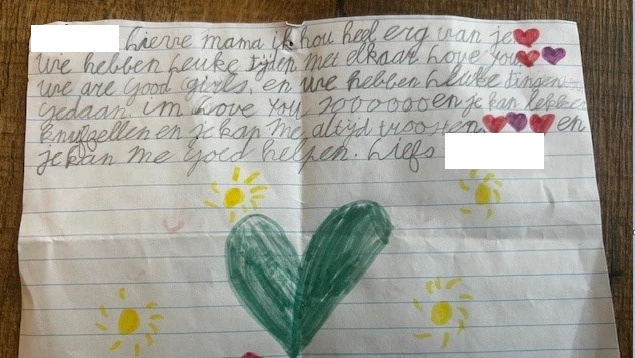 Lieve mama ik hou heel erg van je
We hebben Leuke tijden met elkaar Love you
we are good girls. en we hebben Leuke dingen
gedaan. im Love You 2000000 en je kan lekker
knuffellen en je kan me altyd troosten en
je kan me goed helpen. Liefs